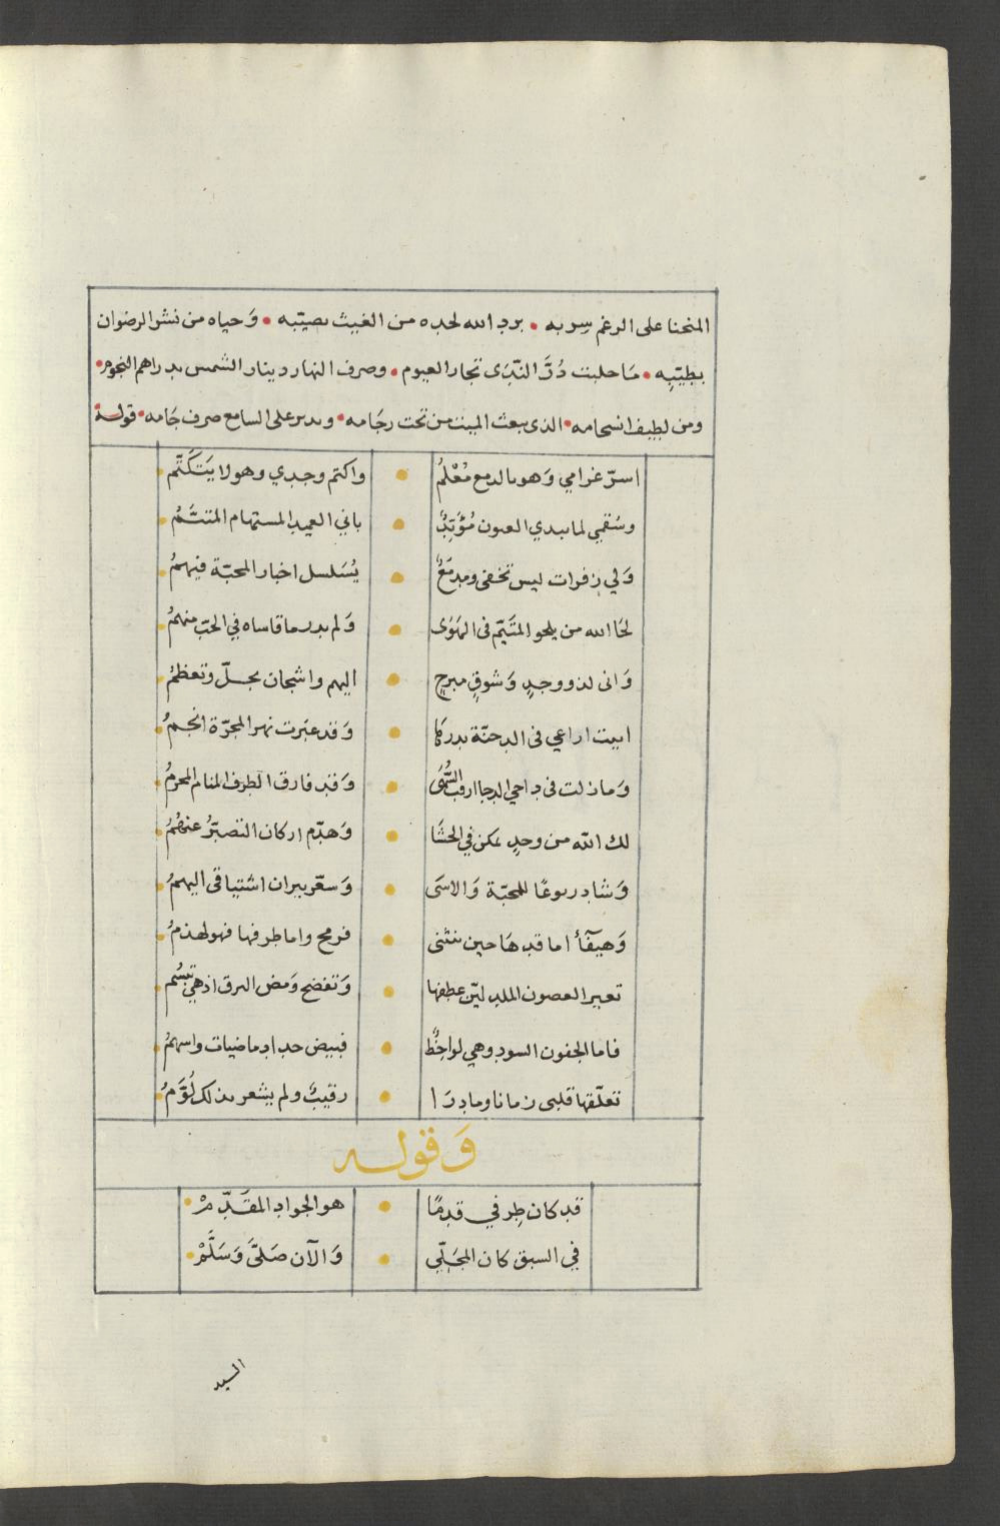 المنحنا على الرغم سربه • برد الله لحده من الغيث بصيّبه • وَحياه من نشر الرضوان
بطيّبه • مَا حلبت دُرَّ النّدَى تجار الغيوم • وصرف النهار دينار الشمس بدراهم النجوم •
ومن لطيف انسجامه • الذى يبعث الميت من تحت رجَامه • ويدير على السامع صرف جَامه • قوله
اسرّ غرامي وَهو بالدمع مُعْلَمُ • واكتم وجدي وهو لا يَتكَتّم
وسُقمي لما يبدي العيون مُؤَبَّدٌ • باني العميد المستهام المتيَّمُ
وَلي زفرات ليس تخفى ومدمَعٌ • يُسَلسل اخبار المحبّة فيهمُ
لحَا الله من يلحو المتَيّم فى الهَوَى • وَلم يدر ما قاساه في الحبّ منهمُ
وَانى لذو وجدٍ وَشوقٍ مبرحٍ • اليهم واشجان تجلّ وتعظمُ
ابيت اراعي فى الدجنّة بدرَها • وَقد عبَرت نهر المجرّة انجمُ
وَما زلت فى داجي الدجا ارقب السُّهَى • وَقد فارق الطرف المنام المحرمُ
لك الله من وجدٍ تمكن في الحشَا • وَهدّم اركان التصبّرُ عنهُمُ
وَشاد ربوعًا للمحبّة وَالاسَى • وَسعّر نيران اشتياقى اليهمُ
وَهيَفَأُ اما قدهَا حين تنثنى • فرمح واما طرفها فهو لهذمُ
تعير الغصون الملد ليّن عطفها • وَتفضح وَمض البرق اذ هي تبسُم
فاما الجفون السود وهي لواحِظٌ • فبيض حداد ماضيات واسهمُ
تعلّقها قلبى زمانا وما درَا • رقيبٌ ولم يشعر بذلك لُوَّمُ
وَقوله
قد كان طِرفي قدمًا • هو الجواد المقَدّمْ
في السبق كان المجَلّي • وَالآن صَلىَّ وَسَلَّمْ
السيد